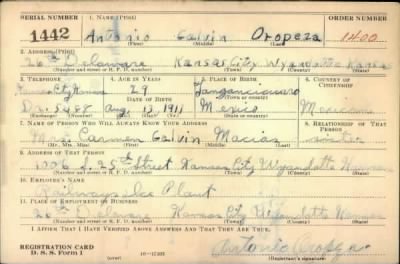 SERIAL NUMBER 1. NAME (Print) ORDER NUMBER
1442 Antonio Galvin Oropeza 1400
(First) (Middle) (Last)
2. ADDRESS (Print)
26th Delaware Kansas City Wyandotte Kansas
(Number and street or R. F. D. number) (Town) (County) (State)
3. TELEPHONE 4. AGE IN YEARS 5. PLACE OF BIRTH 6. COUNTRY OF CITIZENSHIP
Kansas City, Kansas 29
DATE OF BIRTH
Dr. 5488 Aug. 13, 1911 Mexico Mexican
7. NAME OF PERSON WHO WILL ALWAYS KNOW YOUR ADDRESS 8. RELATIONSHIP OF THAT PERSON
Mrs. Carmen Galvin Macias
9. ADDRESS OF THAT PERSON
25th Street Kansas City Wyandotte Kansas
(Number and street or R. F. D. number) (Town) (County) (State)
10. EMPLOYER'S NAME
Railways Ice Plant
11. PLACE OF EMPLOYMENT OR BUSINESS
26th Delaware Kansas City Wyandotte Kansas
(Number and street or R. F. D. number) (Town) (County) (State)
I AFFIRM THAT I HAVE VERIFIED ABOVE ANSWERS AND THAT THEY ARE TRUE.
REGISTRATION CARD
D. S. S. Form 1 (over) Antonio Oropeza
(Registrant's signature)